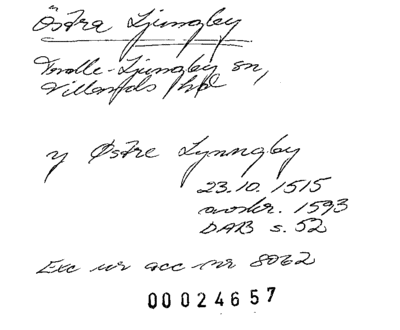 Östra Ljungby
Trolle-Ljungby sn,
Villands hd
y Østre Lynngby
23.10. 1515
avskr. 1593
DAB s. 52
Exc ur acc nr 8062
00024657